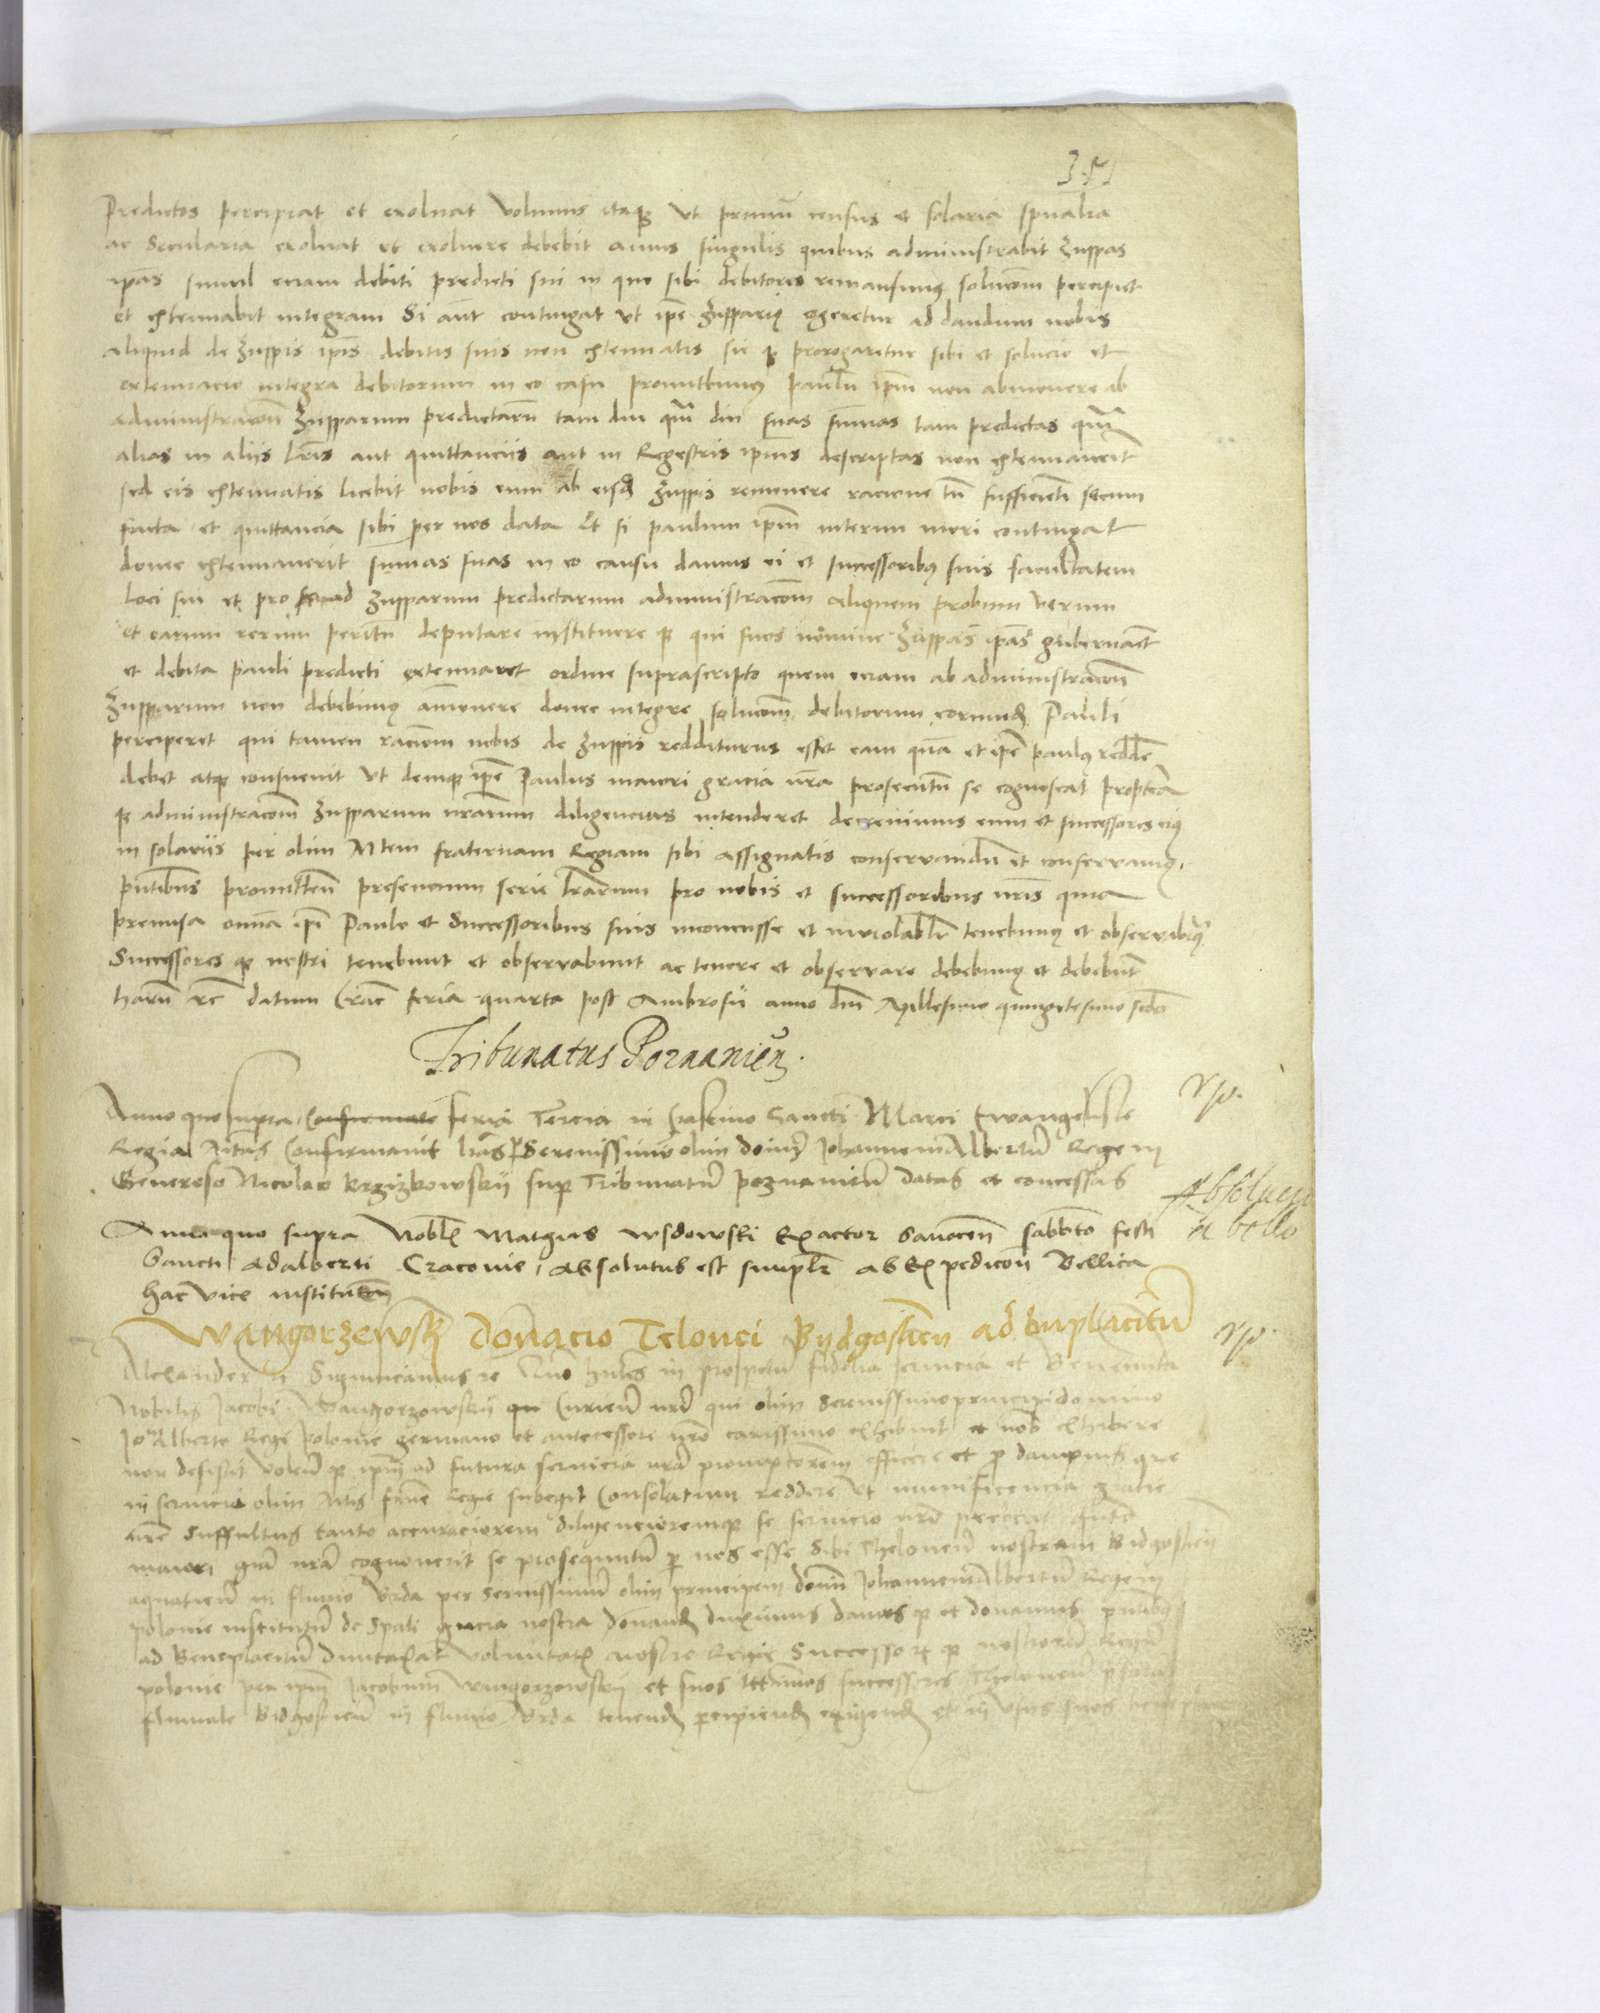 Predictos percipiat et exoluat volumus itaque ut primum census et solaria spualia
ac Secularia exoluat et exoluere debebit annis singulis quibus administrabit zuppas
ipas simul eciam debiti predicti sui in quo sibi debitores remansimus solucom percipiet
et extenuabit integram Si aut contingat ut ipe zupparius ad dandum nobis
aliquid de zuppis ipis debitis suis non extenuatis sic prorogaretur sibi et solucio et
extenuacio integra debitorum in eo casu promittimus paulu ipm non abmouere ab
administracon zupparum predictaru tam diu qm diu suas summas tam predictas qm
alias in aliis lris aut quittanciis aut in Regestris ipius descriptas non extenuauerit
sed eis extenuatis licebit nobis eum ab eisd zuppis remouere racione tn sufficienti secum
facta et quittancia sibi per nos data Et si paulum ipm interim mori contingat
donec extenuauerit summas suas in eo causu damus ei et successoribus suis facultatem
loci sui et pro ad zupparum predictarum administracom aliquem probum verum
et earum rerum peritu deputare instituere que qui suos nomine zuppas ipas gubernaret
et debita pauli predicti extenuaret ordine suprascripto quem eciam ab administracon
zupparum non debebimus amouere donec integre solucom debitorum eorumd Pauli
perciperet qui tamen racioem nobis de zuppis redditurus esset eam qua et ipe paulus redde
debet atque consueuit Ut denique ipe Paulus maiori gracia nra prosecutu se cognoscat proptea
que administracom zupparum nrarum diligencius intenderet decreuimus eum et successores eius
in solariis per olim Mtem fraternam Regiam sibi assignatis conseruandu et conseruamus
pntibus promitten presencium serie lrarum pro nobis et successoribus nris quia
premissa omnia ipi Paulo et Successoribus suis inconcusse et inuiolablr tenebimus et obseruabimus
Successores que nostri tenebunt et obseruabunt ac tenere et obseruare debebimus et debebunt
haru rc datum Crac feria quarta post Ambrosii anno dni Millesimo quingentesimo scdo
Tribunatus Poznanien
Anno quo supra feria Tercia in Crastino Sancti Marci Ewangeliste
Regia Mtas Confirmauit lras Serenissimum olim dominum Johannem Albertum Regem
Generoso Nicolao Krzizkowskij sup Tribunatum poznaniem datas et concessas
Anno quo supra Noblis Matgias wsdowski Exactor Sanocen sabbto festi
Sancti Adalberti Cracouie, Absolutus est simplr ab Expedicon Bellica
hac vice institutem
Absoluen
a bello
Wangorzewskj Donacio Telonei Bydgosticn ad bnplacitum
Alexander Significamus rc Quo hntes in prospetu fidelia seruicia et Benemita
Nobilis Jacobi Wangorzowskij Curien nri qui olim Serenissimo principi domino
Jo Alberto Regi polonie germano et antecessori nro carissimo exhibuit et nob exhibere
non desistit volen que ipm ad futura seruicia nra promptiorem efficere et p dampnis que
in seruicio olim Mtis frne Regie subegit Consolatum reddere ut munificencia gratie
nre Suffultus tanto accuraciorem diligencioremque se seruicio nro
maiori gra nra cognouerit se prosequutum p nos esse Sibi Theloneum nostrum Bidgosticn
aquaticum in fluuio Brda per Serenissimum olim principem domn Johannem Albertum Regem
polonie institutum de Spali gracia nostra donand duximus damus que et donamus pntibus
ad Beneplacitum duntaxat voluntatis nostre Regie Successor que nostrorum Regum
polonie per ipm Jacobum Wangorzowskij et suos lttimos successores Theloneum
fluuiale Bidgosticn in fluuio Brda tenend percipiend exigend et in vsus suos